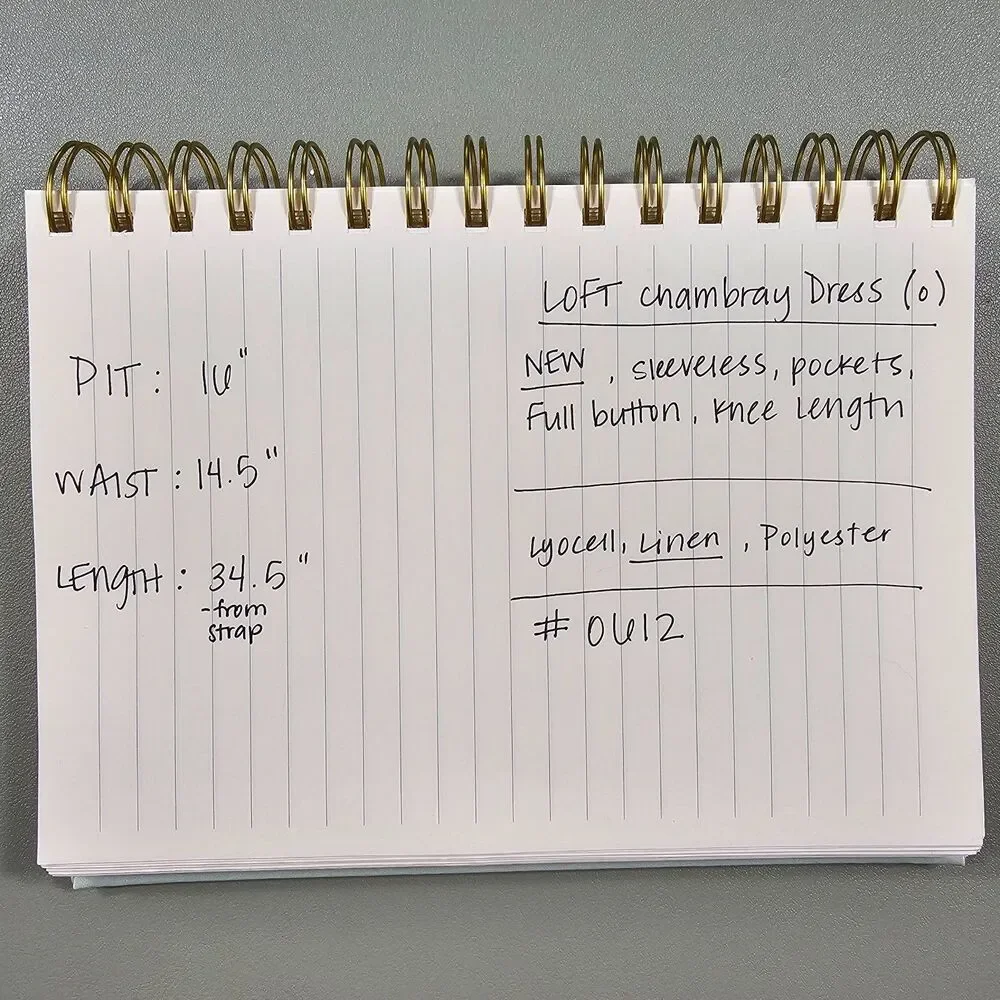 LOFT chambray Dress (0)
NEW, sleeveless, pockets,
Full button, Knee Length
Lyocell, Linen, Polyester
# 0612
PIT: 16"
WAIST: 14.5"
LENGTH: 34.5"
-from
strap